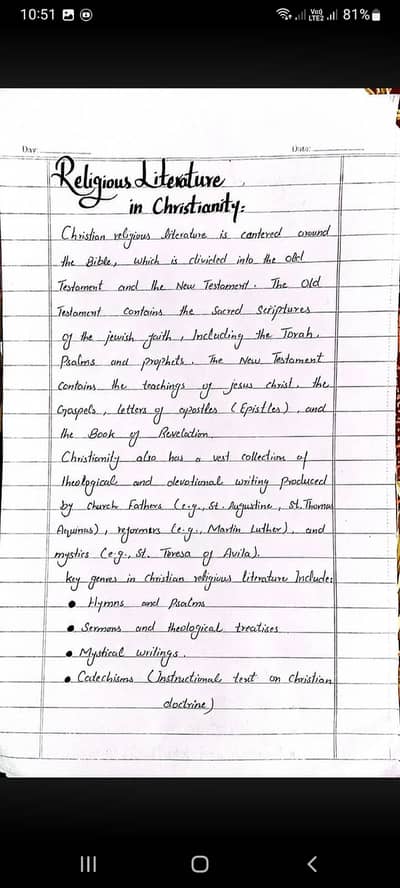 10:51
Vo))
LTE2
81%
Day:
Date:
Religious Literature
in Christianity:
Christian religious literature is cantered around
the Bible, which is divided into the old
Testament and the New Testament. The Old
Testament contains the Sacred Scriptures
of the jewish faith, Including the Torah,
Psalms and prophets. The New Testament
Contains the teachings of jesus christ, the
Gospels, letters of apostles (Epistles), and
the Book of Revelation.
Christianity also has a vast collection of
theological and devotional writing produced
by church Fathers (e.g., St. Augustine, St. Thomas
Aquinas), reformers (e.g., Martin Luther), and
mystics (e.g., St. Teresa of Avila).
key genres in christian religious literature Include:
• Hymns and Psalms
• Sermons and theological treatises
• Mystical writings.
• Catechisms (Instructional text on christian
doctrine)